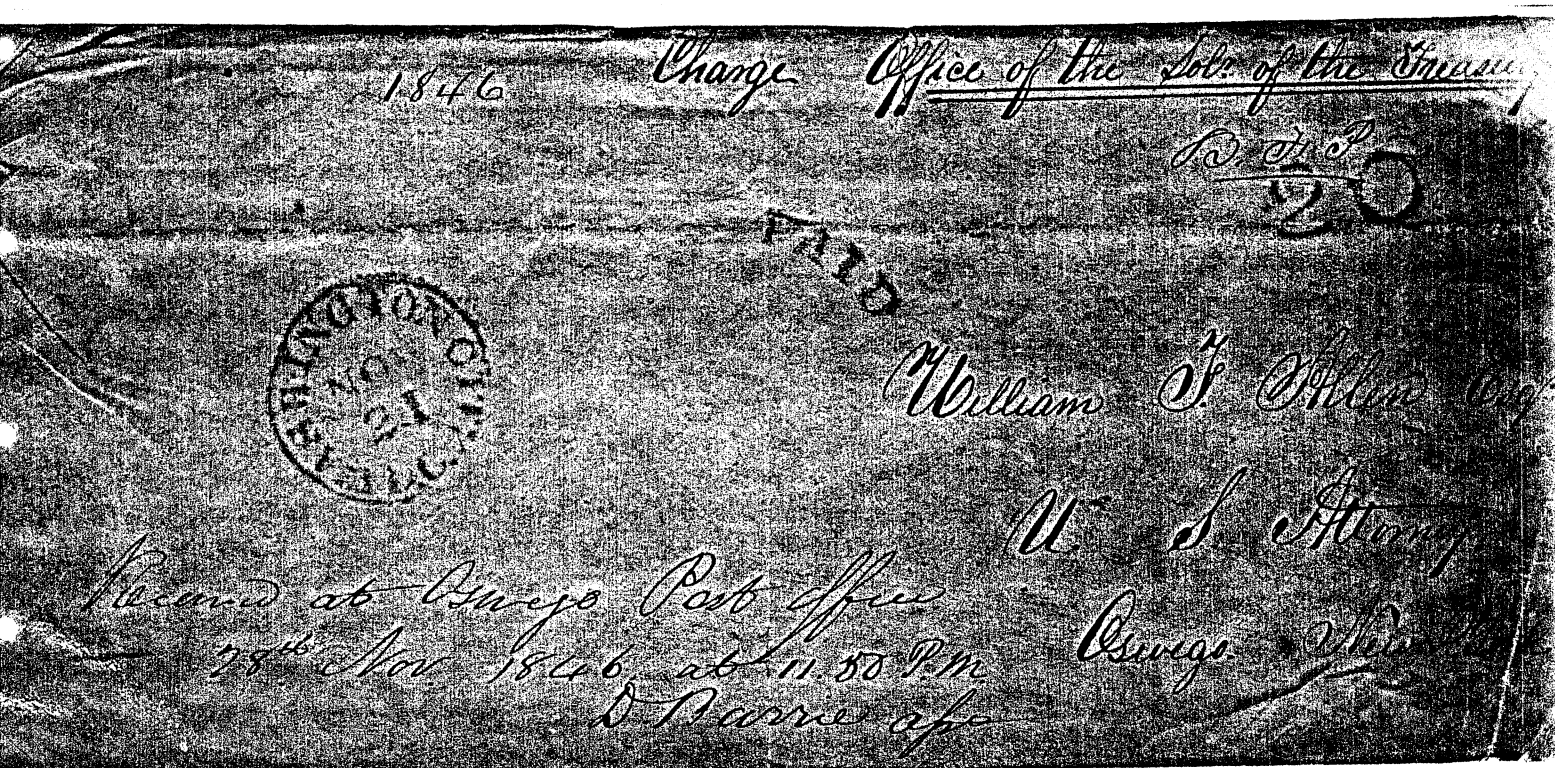 1846 Charge Office of the Solr. of the Treasury
20
PAID
WASHINGTON CITY D.C.
NOV
21
William F. Allen Esq
U. S Attorney
Oswego New York
Received at Oswego Post Office
28th Nov. 1846. at 11.50 P.M.
D Barrie